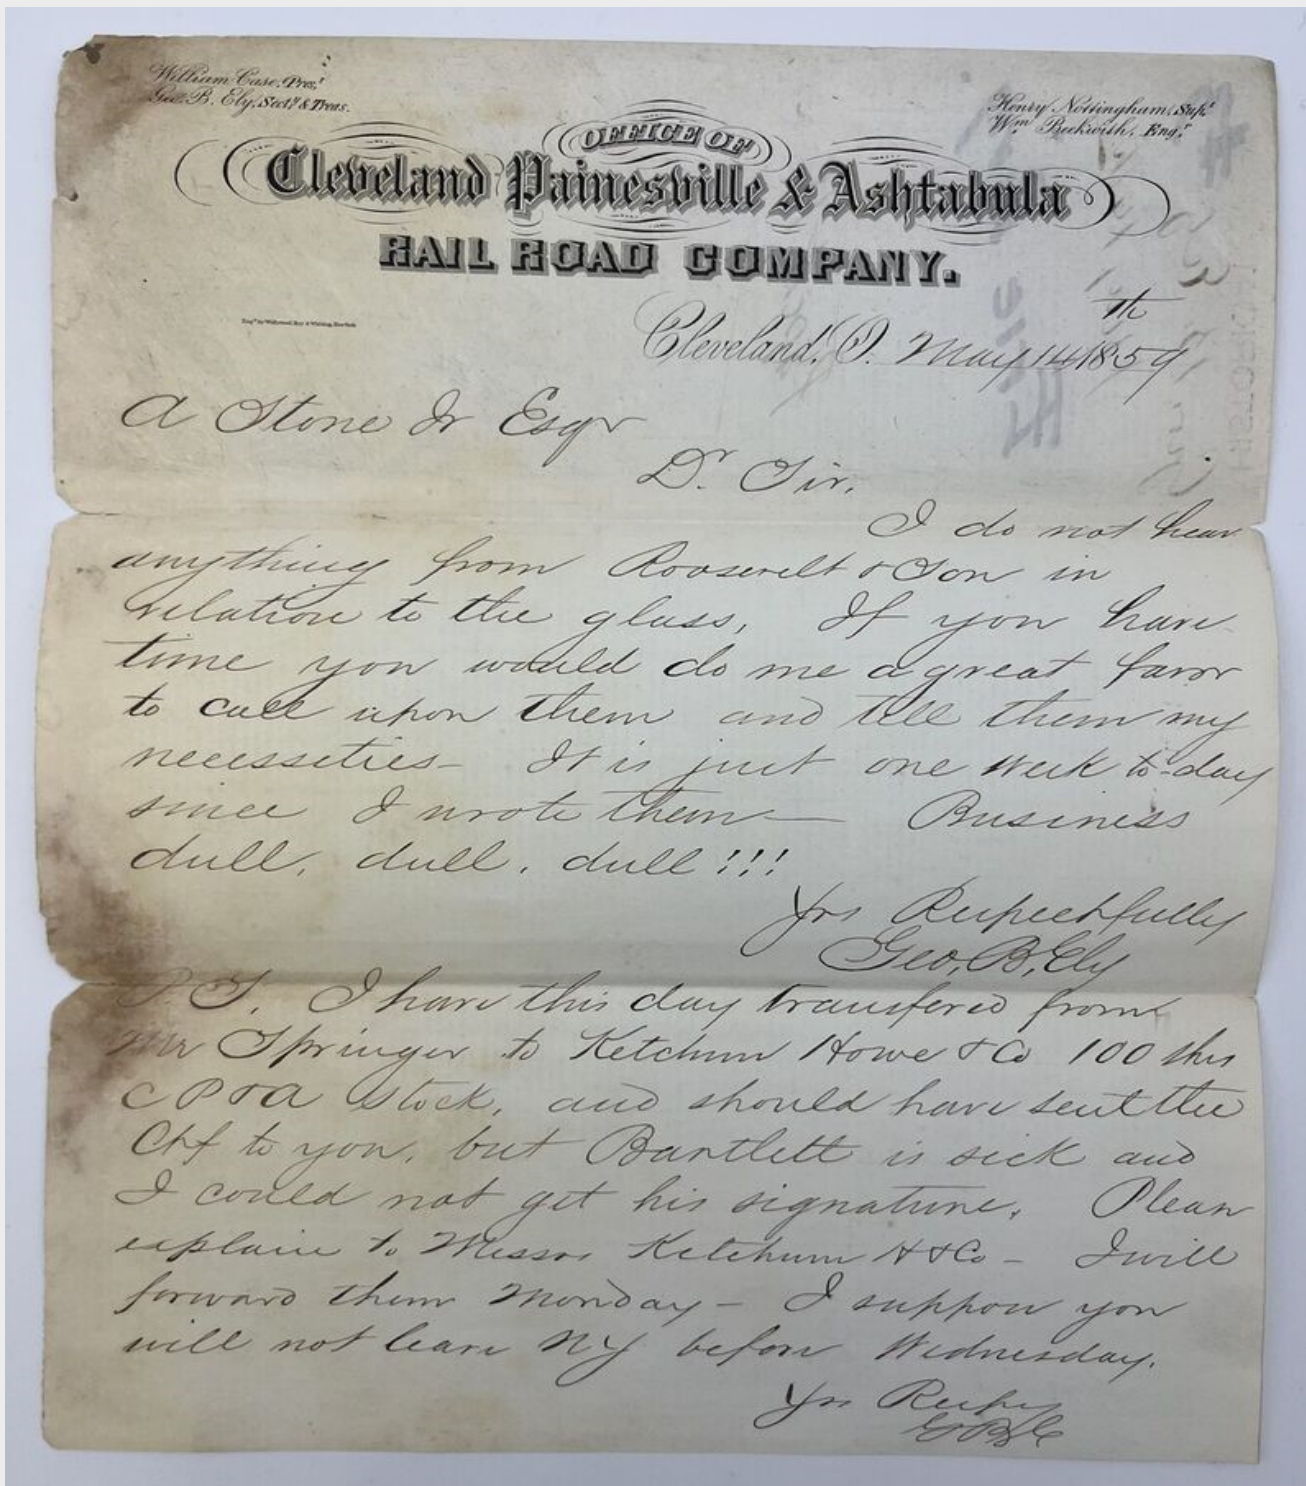 William Case, Pres.t
Geo. B. Ely, Sect.y & Treas.
Henry Nottingham, Sup.t
Wm Beckwith, Eng.r
OFFICE OF
Cleveland Painesville & Ashtabula
RAIL ROAD COMPANY.
Cleveland, O. May 14th 1859
A Stone Jr Esqr
Dr. Sir,
I do not hear
anything from Roosevelt & Son in
relation to the glass, If you have
time you would do me a great favor
to call upon them and tell them my
necesseties - It is just one week to-day
since I wrote them — Business
dull, dull, dull !!!
Yrs Respectfully
Geo, B, Ely
P.S. I have this day transfered from
Mr Springer to Ketchum Howe & Co 100 shs
C P & A Stock, and should have sent the
Ctf to you, but Bartlett is sick and
I could not get his signature. Please
explain to Messrs Ketchum H & Co - I will
forward them Monday - I suppose you
will not leave NY before Wednesday.
Yrs Respy
GBE